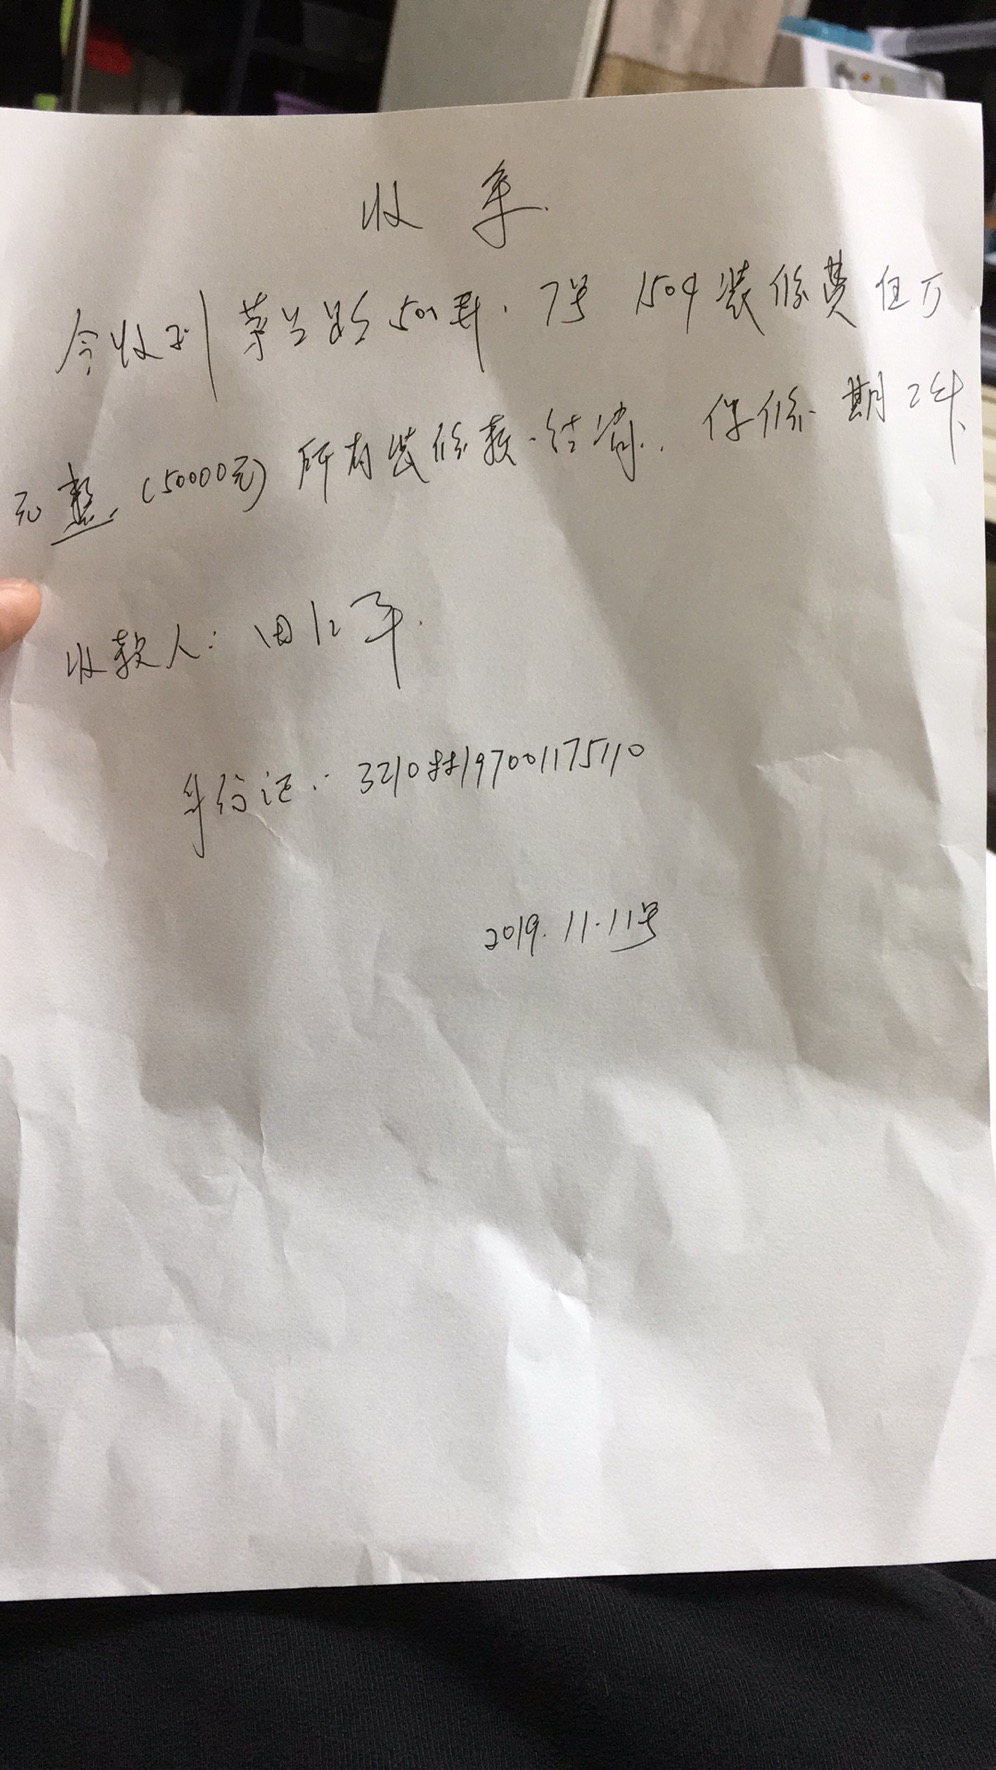 收条
今收到茅台路501弄.7号1504装修费伍万
元整(50000元)所有装修款.结清.保修期2年
收款人:田
身份证:3210
2019.11.11号